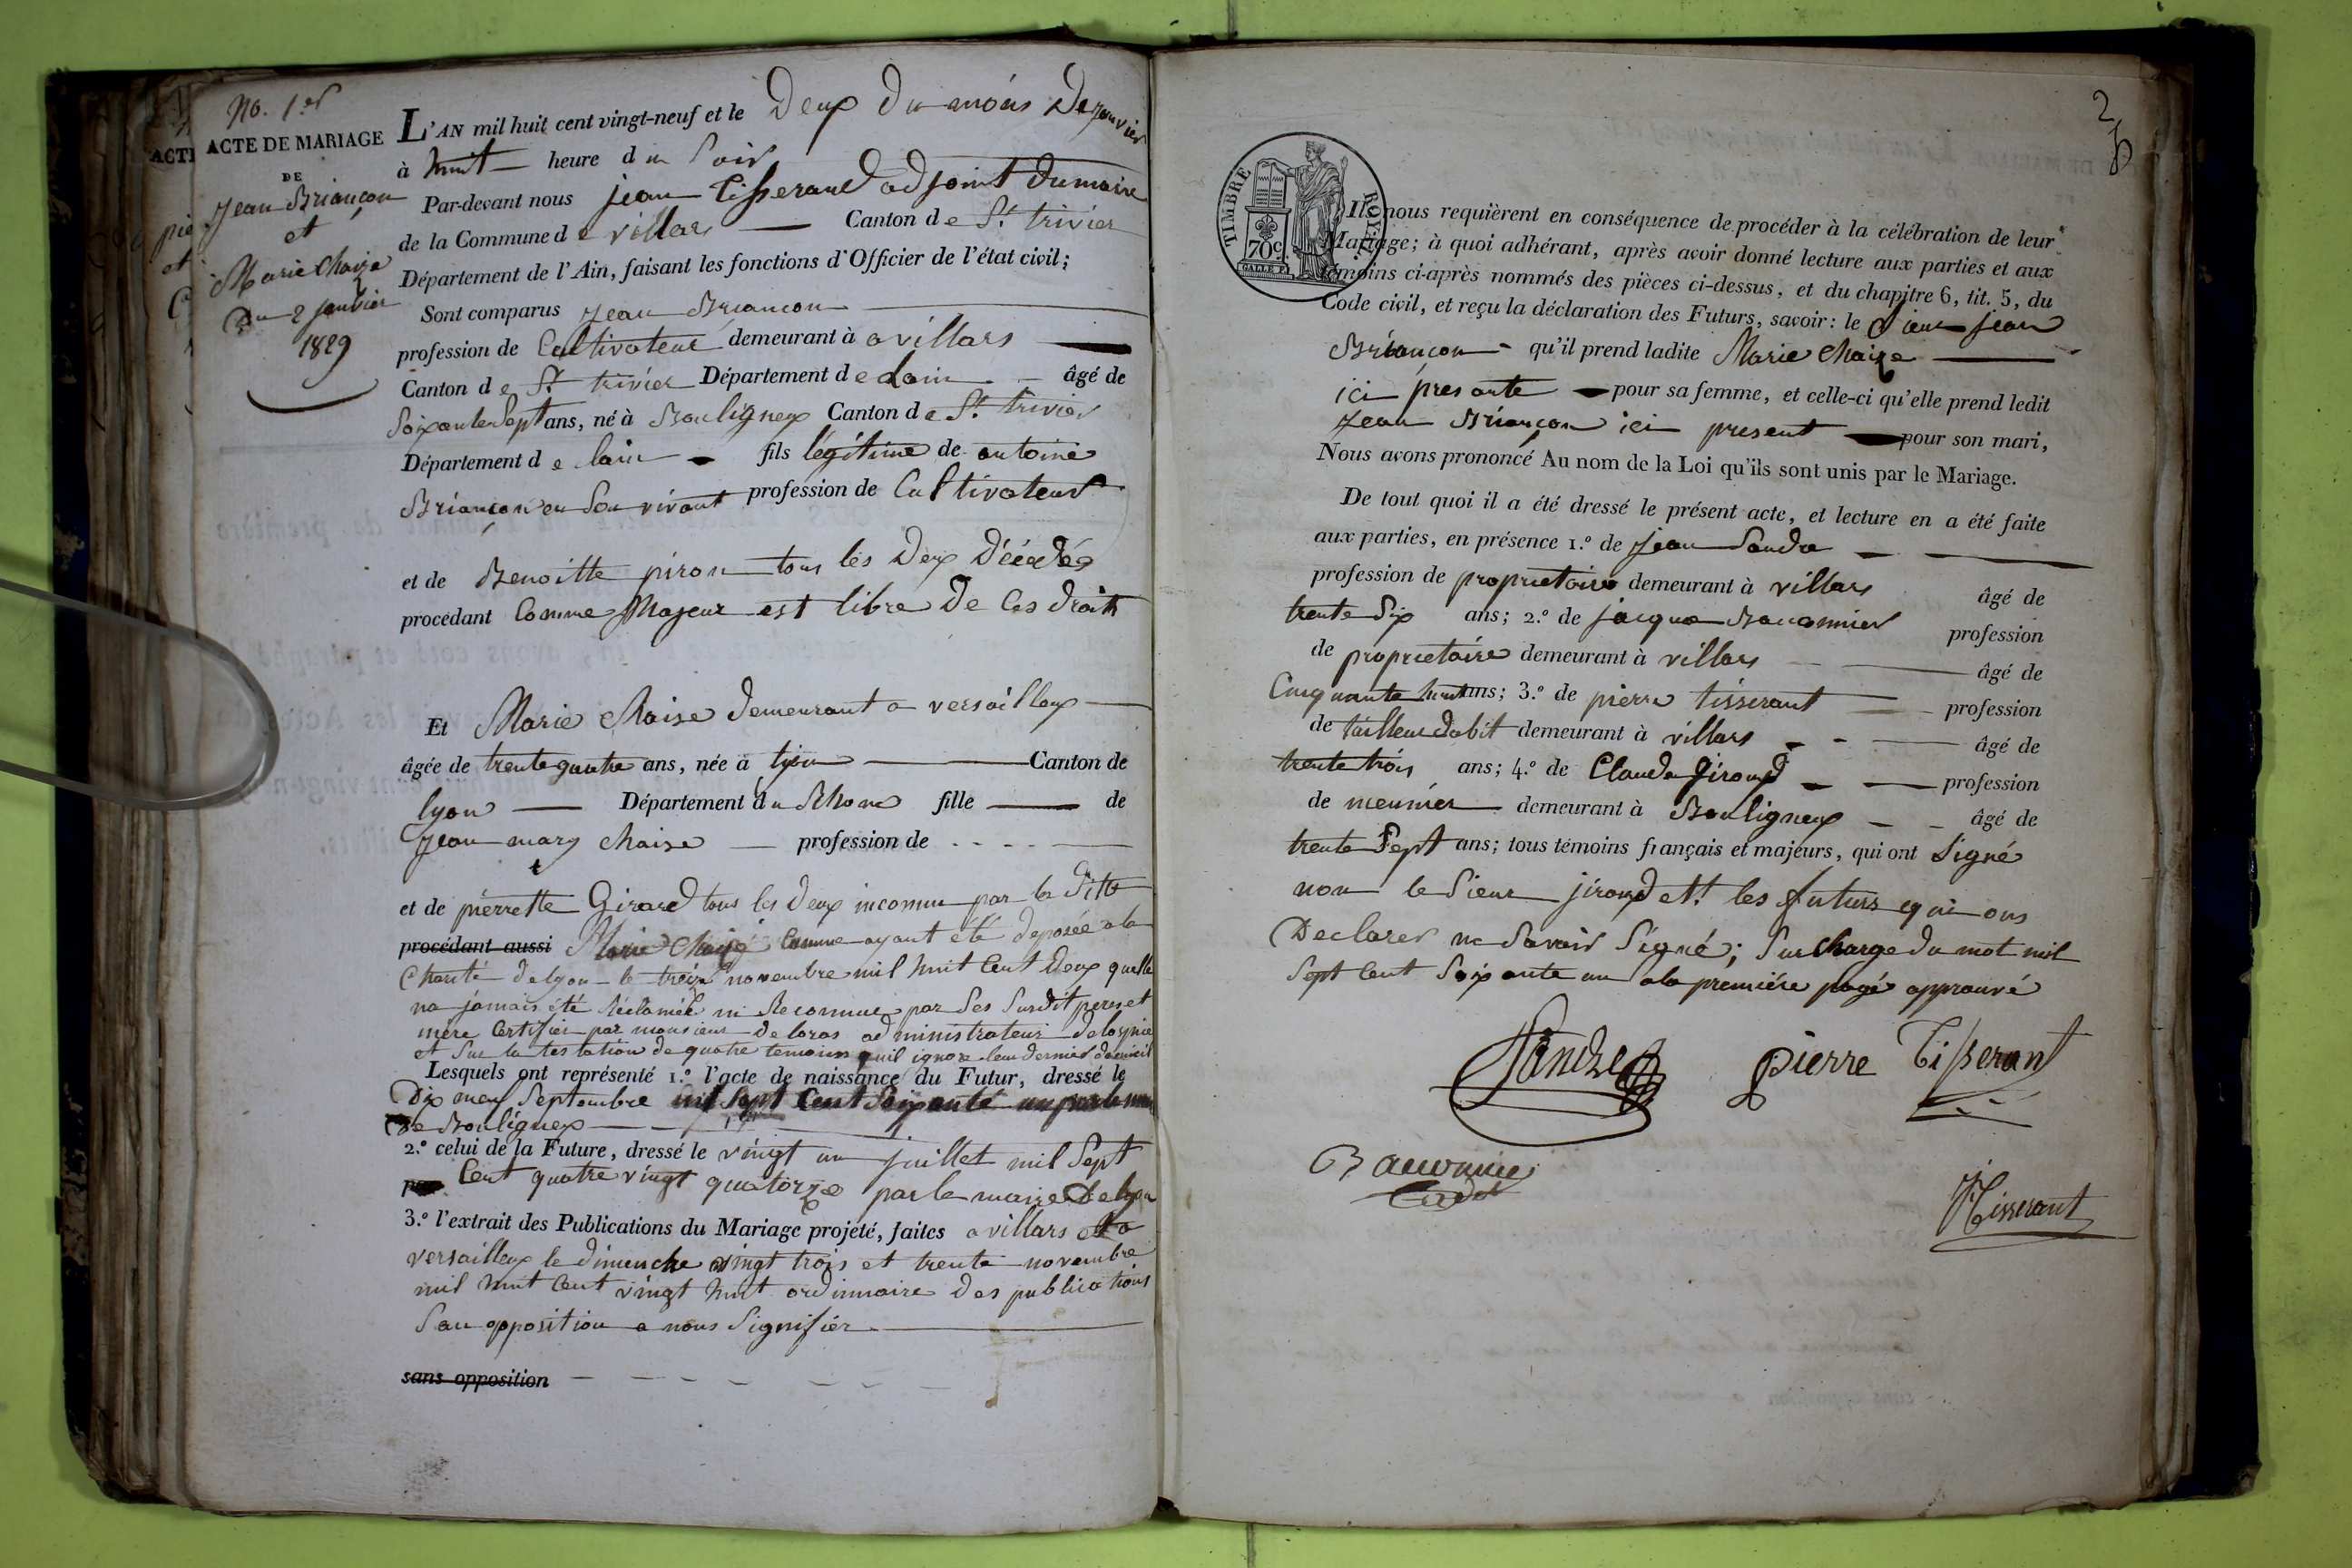 No. 1er
ACTE DE MARIAGE
DE
Jean Briançon
et
Marie Chaize
Du 2 janvier
1829
L'AN mil huit cent vingt-neuf et le Deux du mois De janvier
à huit heure du Soir
Par-devant nous jean tisserand adjoint du maire
de la Commune de villars Canton de St. trivier
Département de l'Ain, faisant les fonctions d'Officier de l'état civil;
Sont comparus Jean Briancon
profession de Cultivateur demeurant à a villars
Canton de St. trivier Département de Lain âgé de
Soixante Sept ans, né à Bouligneux Canton de St. trivier
Département de lain fils légitime de antoine
Briançon en Son vivant profession de Cultivateur
et de Benoitte piron tous les Deux Décédés
procédant Comme Majeur est libre De Ces droits
Et Marie Chaise demeurant a versailleux
âgée de trente quatre ans, née à lyon Canton de
lyon Département du Rhone fille de
Jean mary Chaise profession de
et de pierrette Girard tous les deux inconnu par la Ditte
procédant aussi Marie Chaize Comme ayant été deposée a la
Charité de lyon le treize novembre mil huit Cent Deux quelle
na jamais été Réclamée ni Reconnue par Ses Susdit peres et
mere Certifier par monsieur de loras administrateur de lospice
et Sur la testation de quatre temoins quil ignore leur dernier domicil
Lesquels ont représenté 1.º l'acte de naissance du Futur, dressé le
Dix neuf Septembre mil Sept Cent Soixante un par le maire
de Bouligneux
2.º celui de la Future, dressé le vingt un juillet mil Sept
Cent quatre vingt quatorze par le maire De lyon
3.º l'extrait des Publications du Mariage projeté, faites a villars et a
versailleux le dimenche vingt trois et trente novembre
mil huit Cent vingt huit ordinnaire des publications
San opposition a nous Signifier
sans opposition
2
TIMBRE ROYAL
70c.
Ils nous requièrent en conséquence de procéder à la célébration de leur
Mariage; à quoi adhérant, après avoir donné lecture aux parties et aux
témoins ci-après nommés des pièces ci-dessus, et du chapitre 6, tit. 5, du
Code civil, et reçu la déclaration des Futurs, savoir: le Sieur jean
Briançon qu'il prend ladite Marie Chaize
ici presante pour sa femme, et celle-ci qu'elle prend ledit
Jean Briançon ici present pour son mari,
Nous avons prononcé Au nom de la Loi qu'ils sont unis par le Mariage.
De tout quoi il a été dressé le présent acte, et lecture en a été faite
aux parties, en présence 1.º de Jean Sandre
profession de proprietaire demeurant à villars âgé de
trente Six ans; 2.º de jacque Bauonnier profession
de proprietaire demeurant à villars âgé de
Cinquante huit ans; 3.º de pierre tisserant profession
de tailleur dabit demeurant à villars âgé de
trente trois ans; 4.º de Claude Giroud profession
de meunier demeurant à Bouligneux âgé de
trente Sept ans; tous témoins français et majeurs, qui ont Signé
non le Sieur jiroud et les futurs qui ons
Declarer ne Savoir Signé; Surcharge du mot mil
Sept Cent Soixante un a la premiére page approuvé
Sandre
pierre Tisserant
Bauonnier
Cadet
J Tisserant